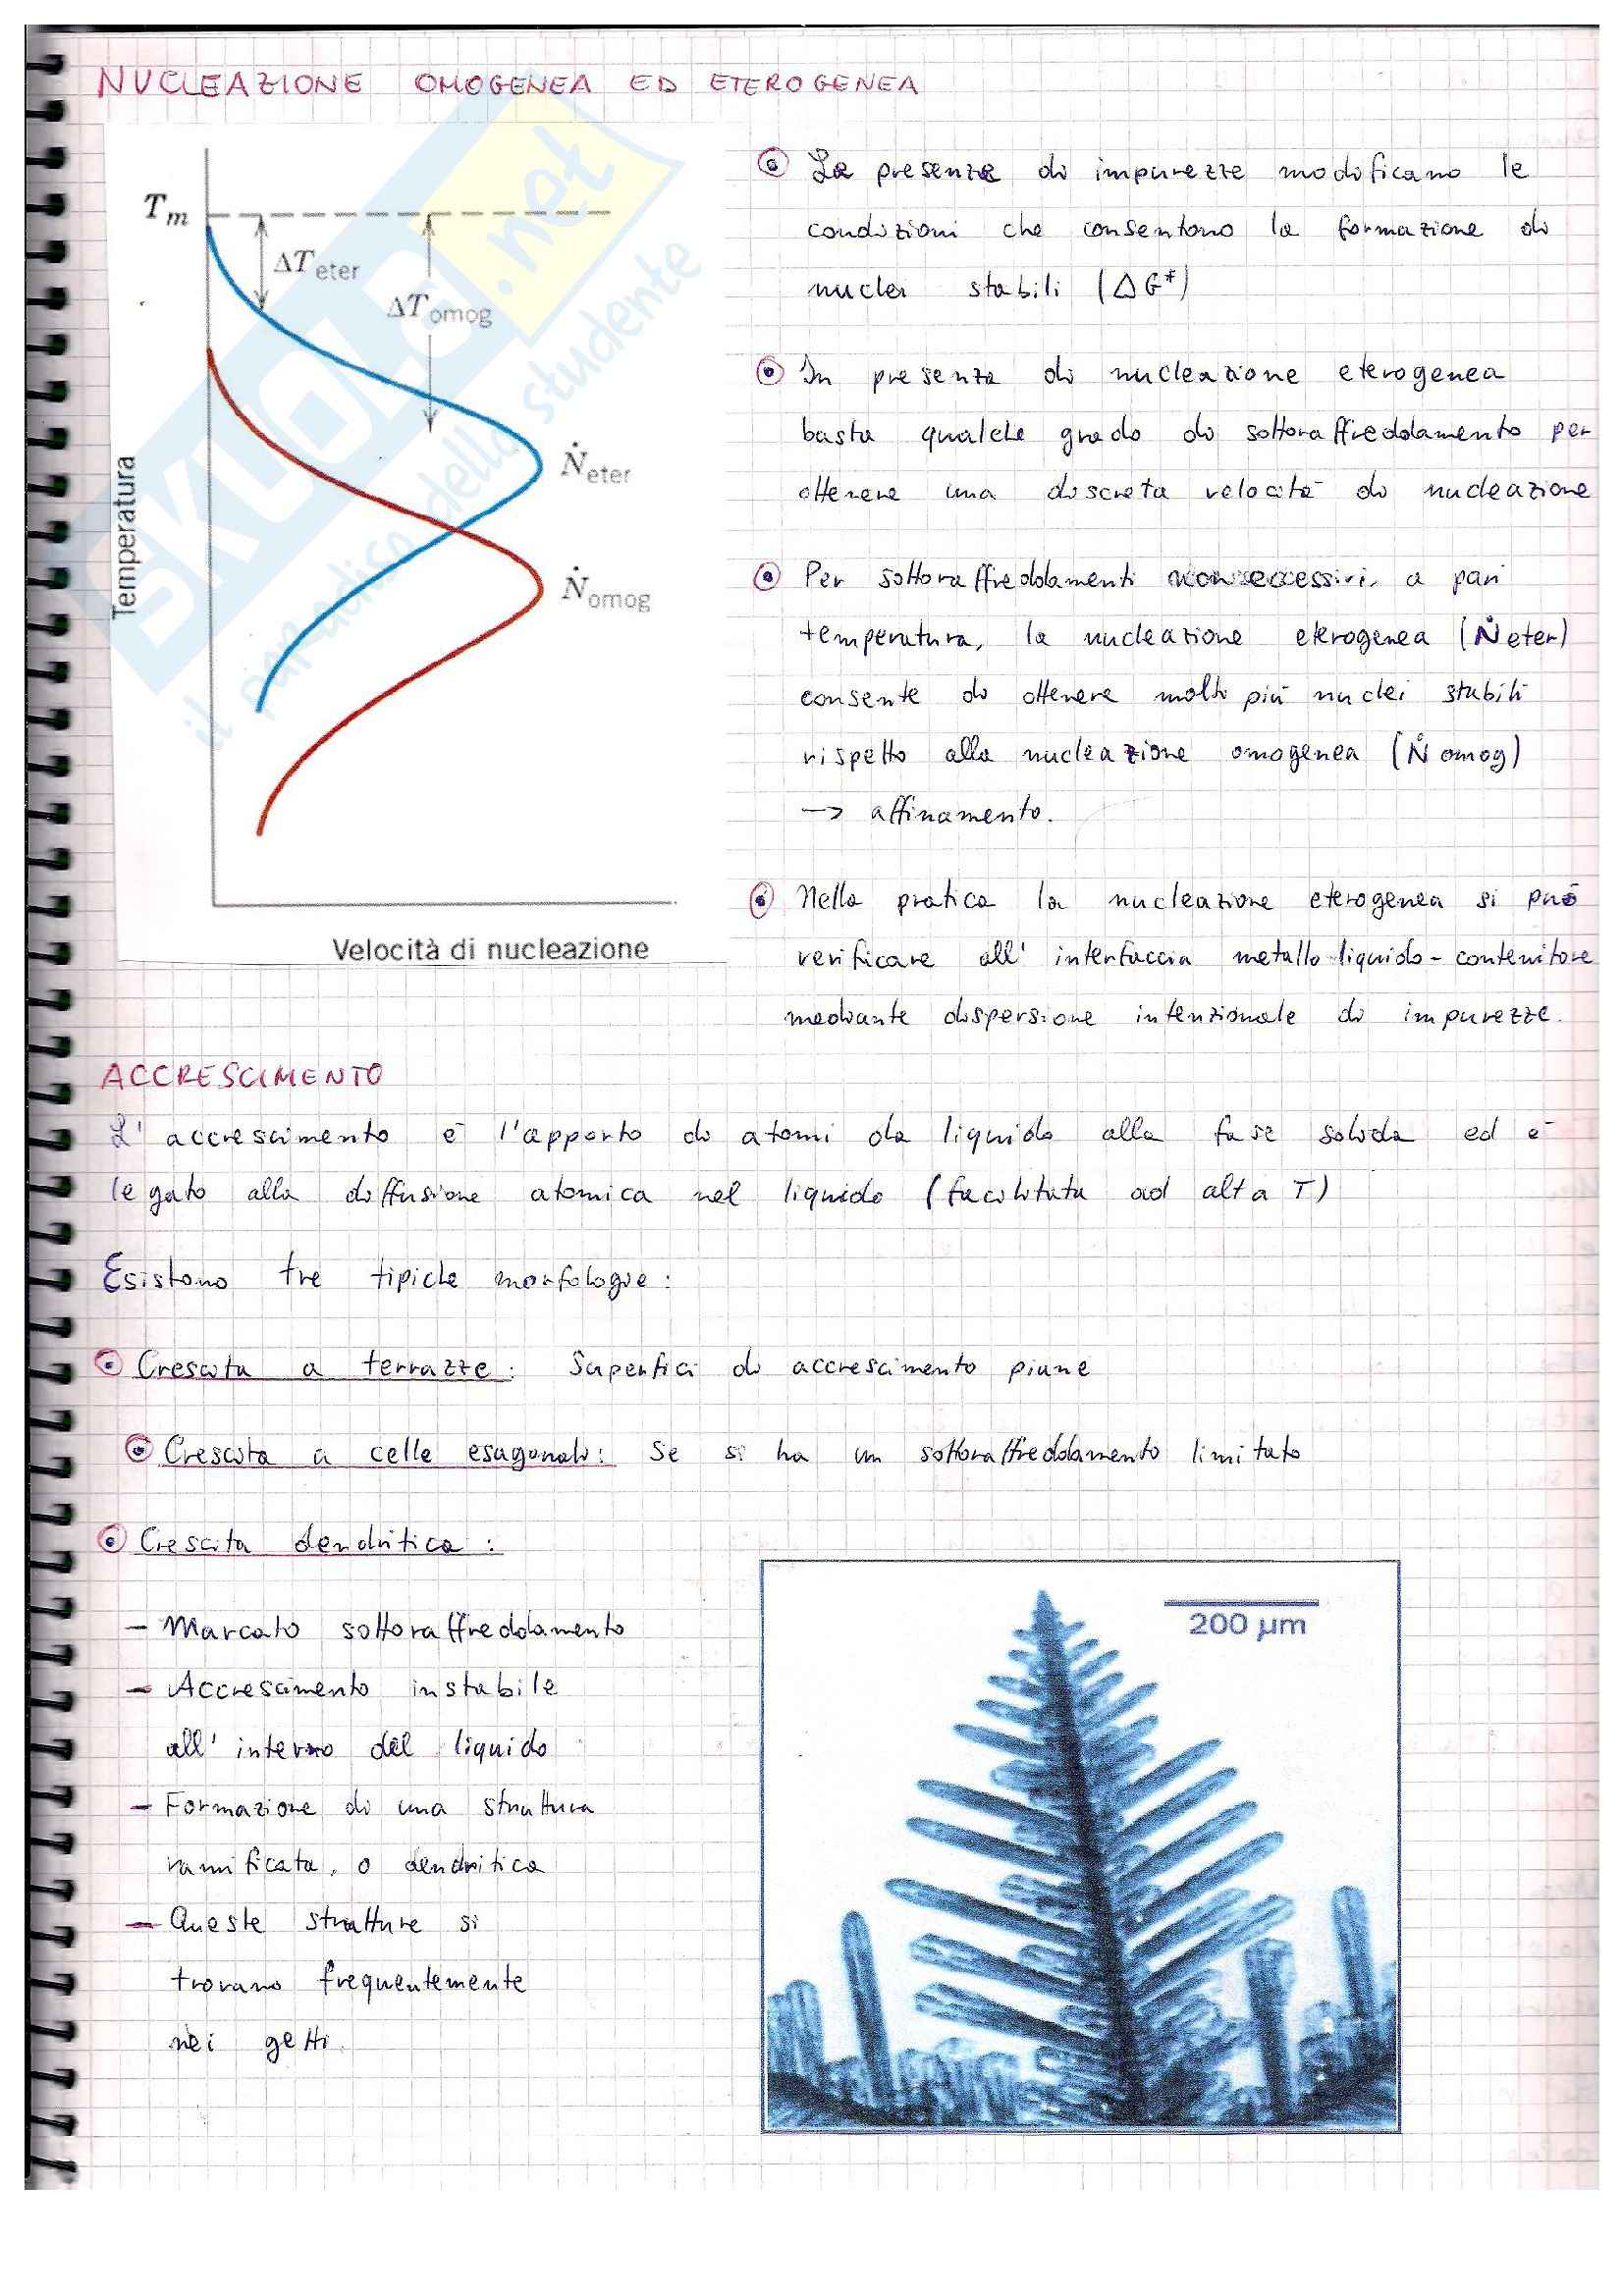 NUCLEAZIONE OMOGENEA ED ETEROGENEA
Tm
ΔTeter
ΔTomog
Ṅeter
Ṅomog
Temperatura
Velocità di nucleazione
SKUOLA.net
il paradiso dello studente
La presenza di impurezze modificano le
condizioni che consentono la formazione di
nuclei stabili (ΔG*)
In presenza di nucleazione eterogenea
basta qualche grado di sottoraffreddamento per
ottenere una discreta velocità di nucleazione
Per sottoraffreddamenti non eccessivi, a pari
temperatura, la nucleazione eterogenea (Ṅeter)
consente di ottenere molti più nuclei stabili
rispetto alla nucleazione omogenea (Ṅ omog)
→ affinamento.
Nella pratica la nucleazione eterogenea si può
verificare all' interfaccia metallo liquido - contenitore
mediante dispersione intenzionale di impurezze.
ACCRESCIMENTO
L' accrescimento è l'apporto di atomi da liquido alla fase solida ed è
legato alla diffusione atomica nel liquido (facilitata ad alta T)
Esistono tre tipiche morfologie:
Crescita a terrazze: Superfici di accrescimento piane
Crescita a celle esagonali: Se si ha un sottoraffreddamento limitato
Crescita dendritica:
- Marcato sottoraffreddamento
- Accrescimento instabile
all' interno del liquido
- Formazione di una struttura
ramificata, o dendritica
- Queste strutture si
trovano frequentemente
nei getti.
200 µm